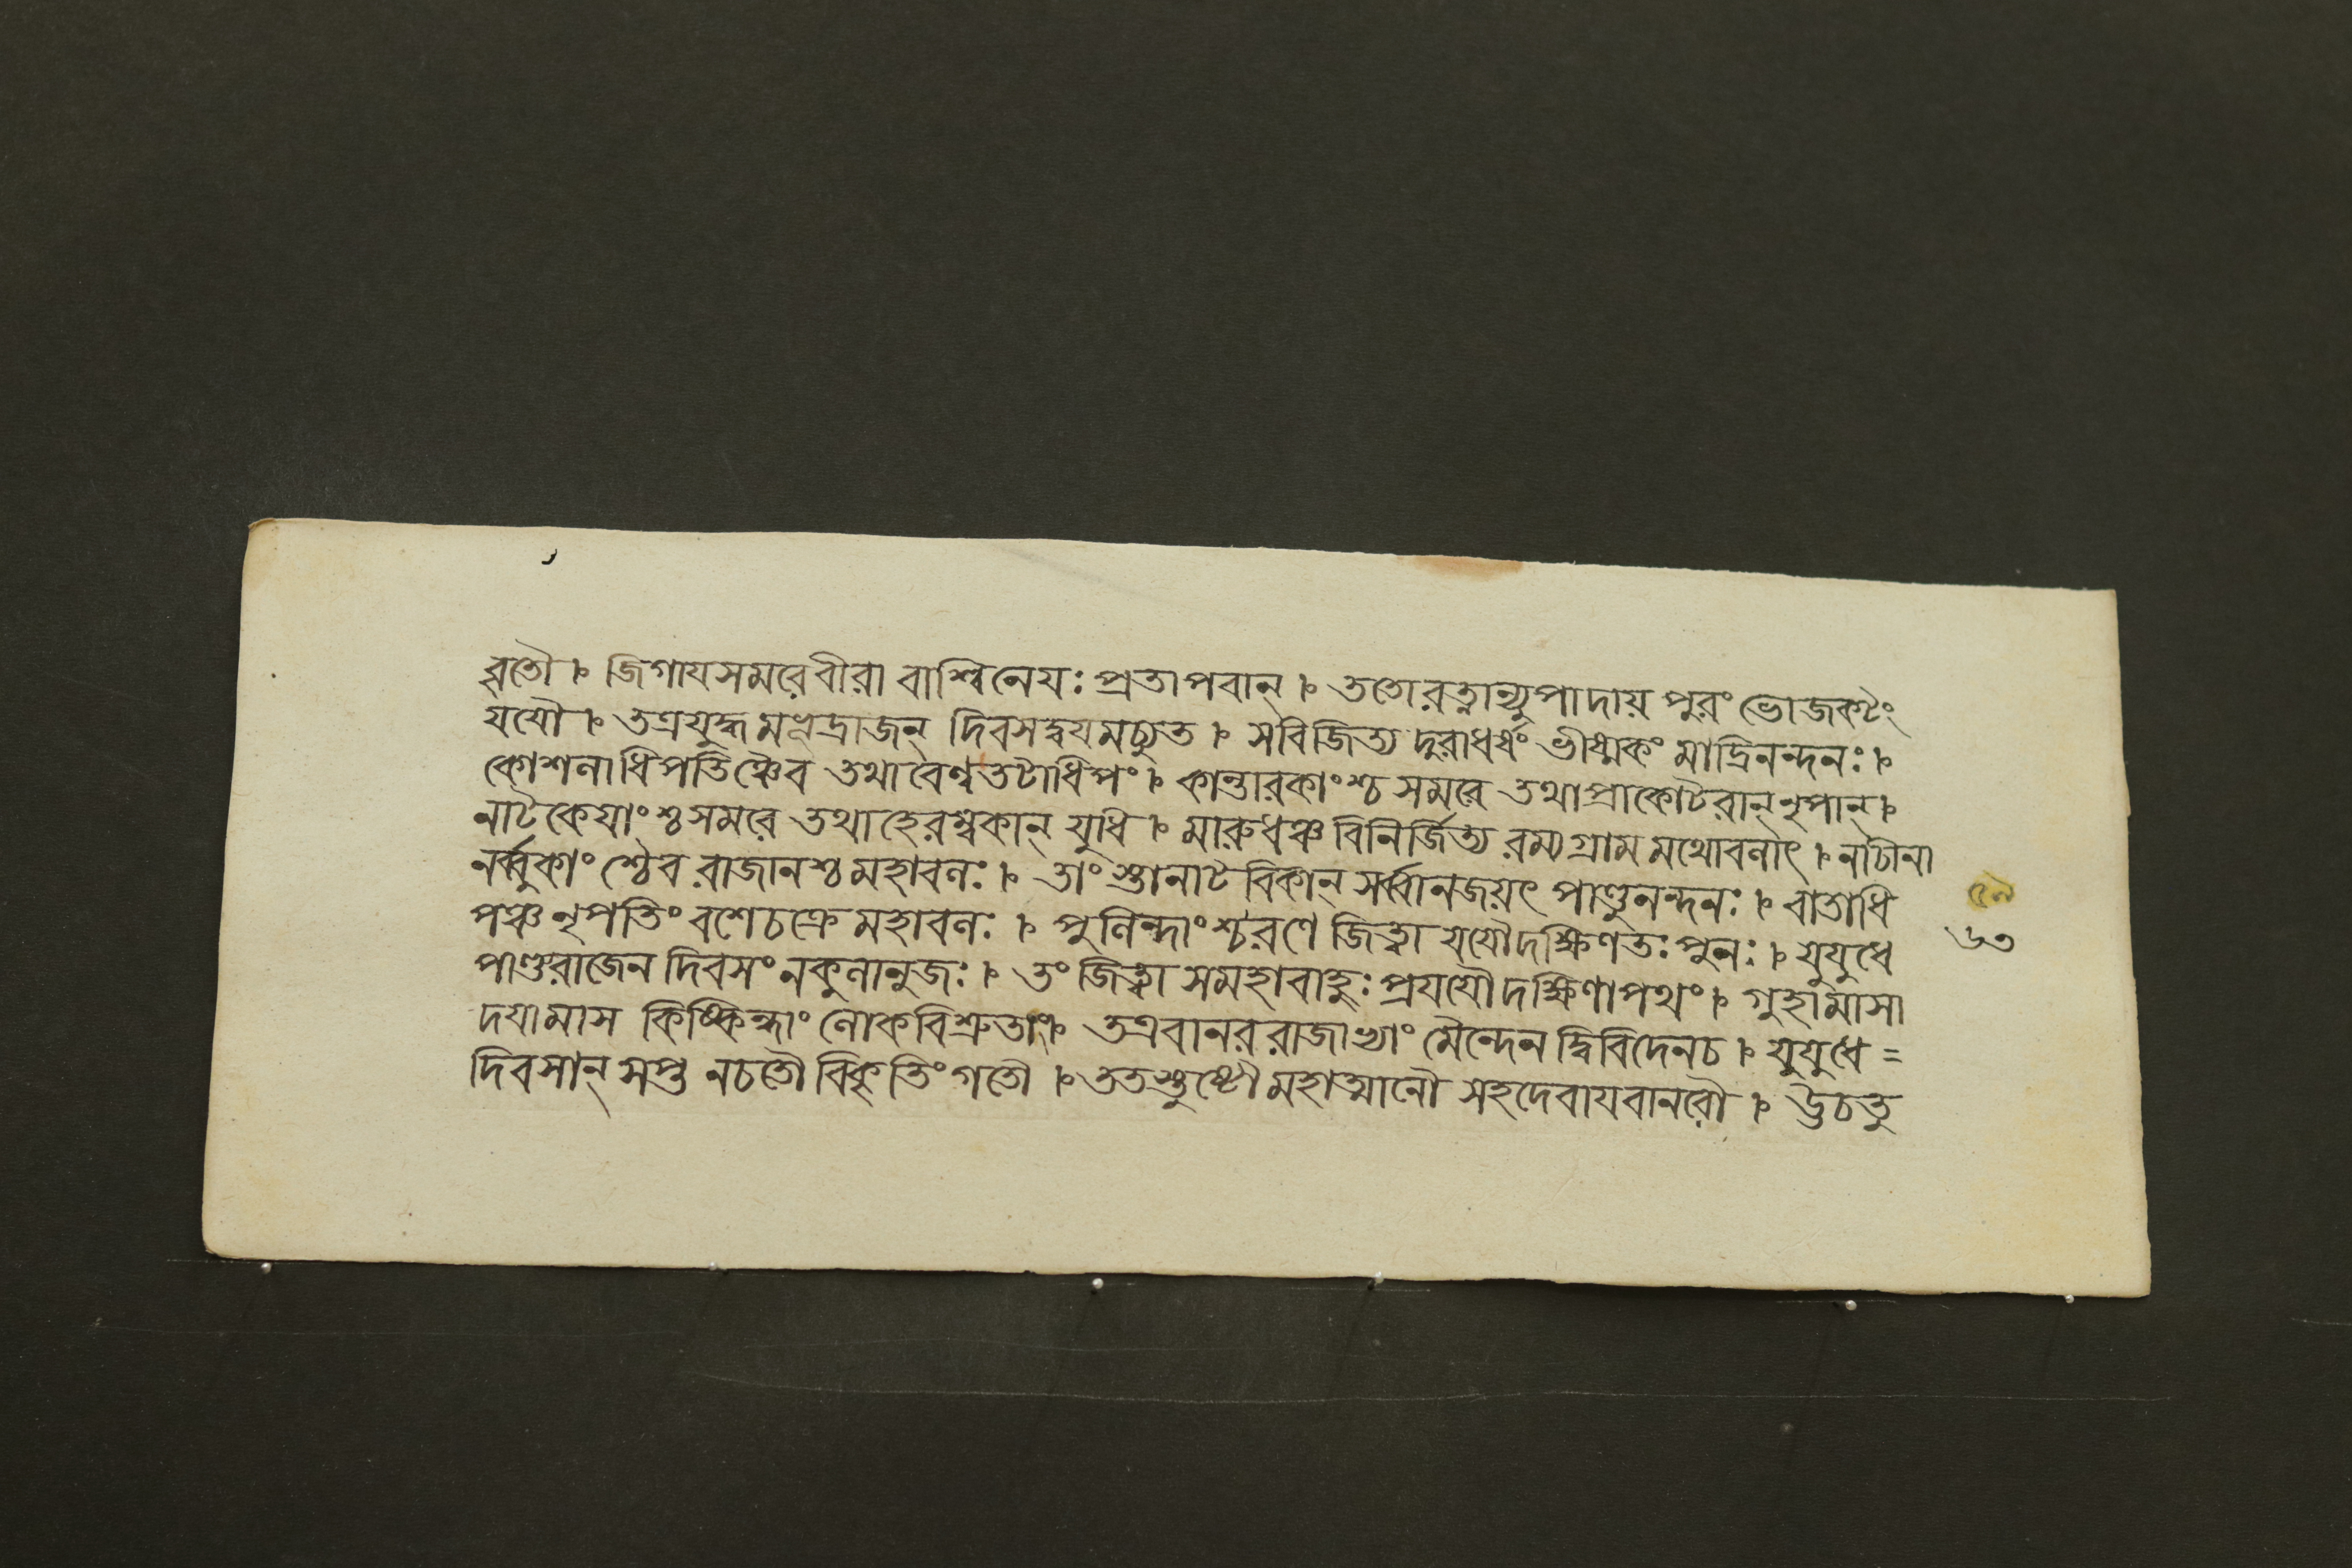 বৃতৌ । জিগায সমরে বীরা বাশ্বিনেযঃ প্রতাপবান্ । ততো রত্নান্যুপাদায় পুরং ভোজকটং
যযৌ । তত্র যুদ্ধমভূদ্রাজন্ দিবসদ্বযমচ্যুত । স বিজিত্য দুরাধর্ষং ভীষ্মকং মাদ্রিনন্দনঃ ।
কোশলাধিপতিঞ্চৈব তথা বৈণ্বতটাধিপং । কান্তারকাংশ্চ সমরে তথা প্রাকোটরান্ নৃপান্ ।
নাটকেযাংশ্চ সমরে তথা হেরম্বকান্ যুধি । মারুধঞ্চ বিনির্জিত্য রম্যগ্রামমথোবলাৎ । নাচীনা
নর্ব্বুকাংশ্চৈব রাজানশ্চ মহাবলঃ । তাংস্তানাটবিকান্ সর্ব্বানজয়ৎ পাণ্ডুনন্দনঃ । বাতাধি
পঞ্চ নৃপতিং বশে চক্রে মহাবলঃ । পুলিন্দাংশ্চ রণে জিত্বা যযৌ দক্ষিণতঃ পুনঃ । যুযুধে
পাণ্ড্যরাজেন দিবসং নকুলানুজঃ । তং জিত্বা স মহাবাহুঃ প্রযযৌ দক্ষিণাপথং । গুহামাসা
দযামাস কিষ্কিন্ধাং লোকবিশ্রুতাং । তত্র বানররাজাভ্যাং মৈন্দেন দ্বিবিদেন চ । যুযুধে =
দিবসান্ সপ্ত ন চ তৌ বিকৃতিং গতৌ । ততস্তুষ্টৌ মহাত্মানৌ সহদেবায বানরৌ । ঊচতু
৬৩